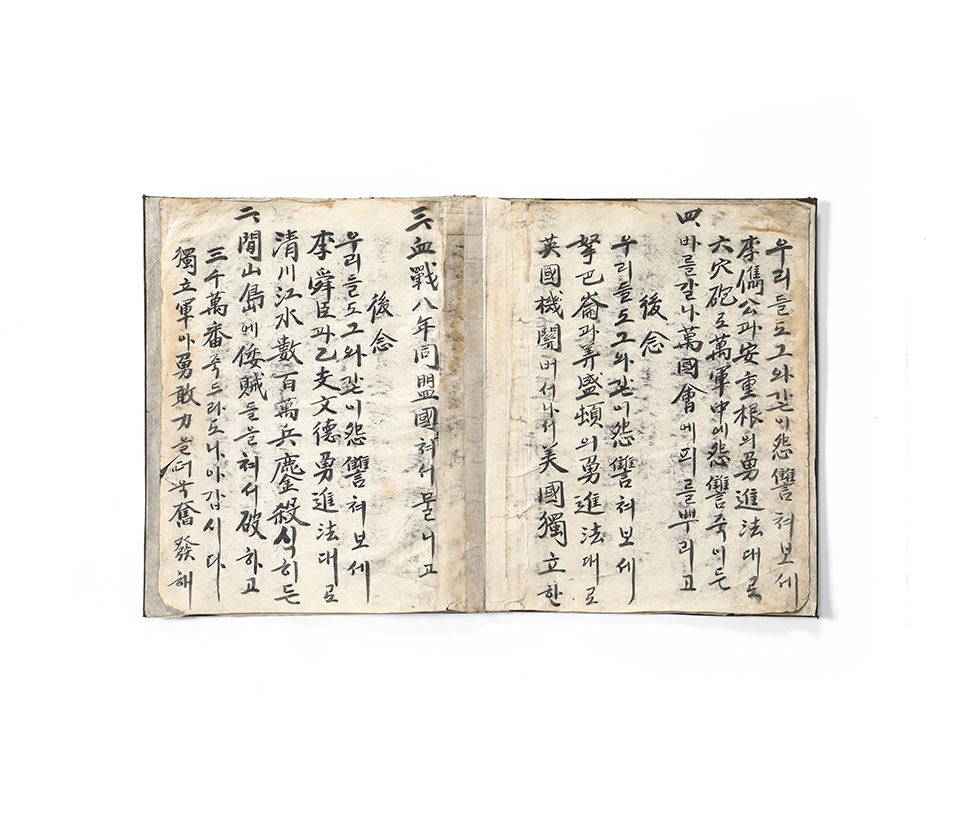 獨立軍아勇敢力을더욱奮發해
三千萬番죽드라도나아갑시다
二、閒山島에倭賊들을쳐서破하고
淸川江水數百萬兵鏖殺식히든
李舜臣과乙支文德勇進法대로
우리들도그와갇이怨讐쳐보세
後念
三、血戰八年同盟國쳐서물니고
英國機關버서나서美國獨立한
拏巴崙과華盛頓의勇進法대로
우리들도그와갇이怨讐쳐보세
後念
四、바를갈나萬國會에피를뿌리고
六穴砲로萬軍中에怨讐죽이든
李儁公과安重根의勇進法대로
우리들도그와갇이怨讐쳐보세